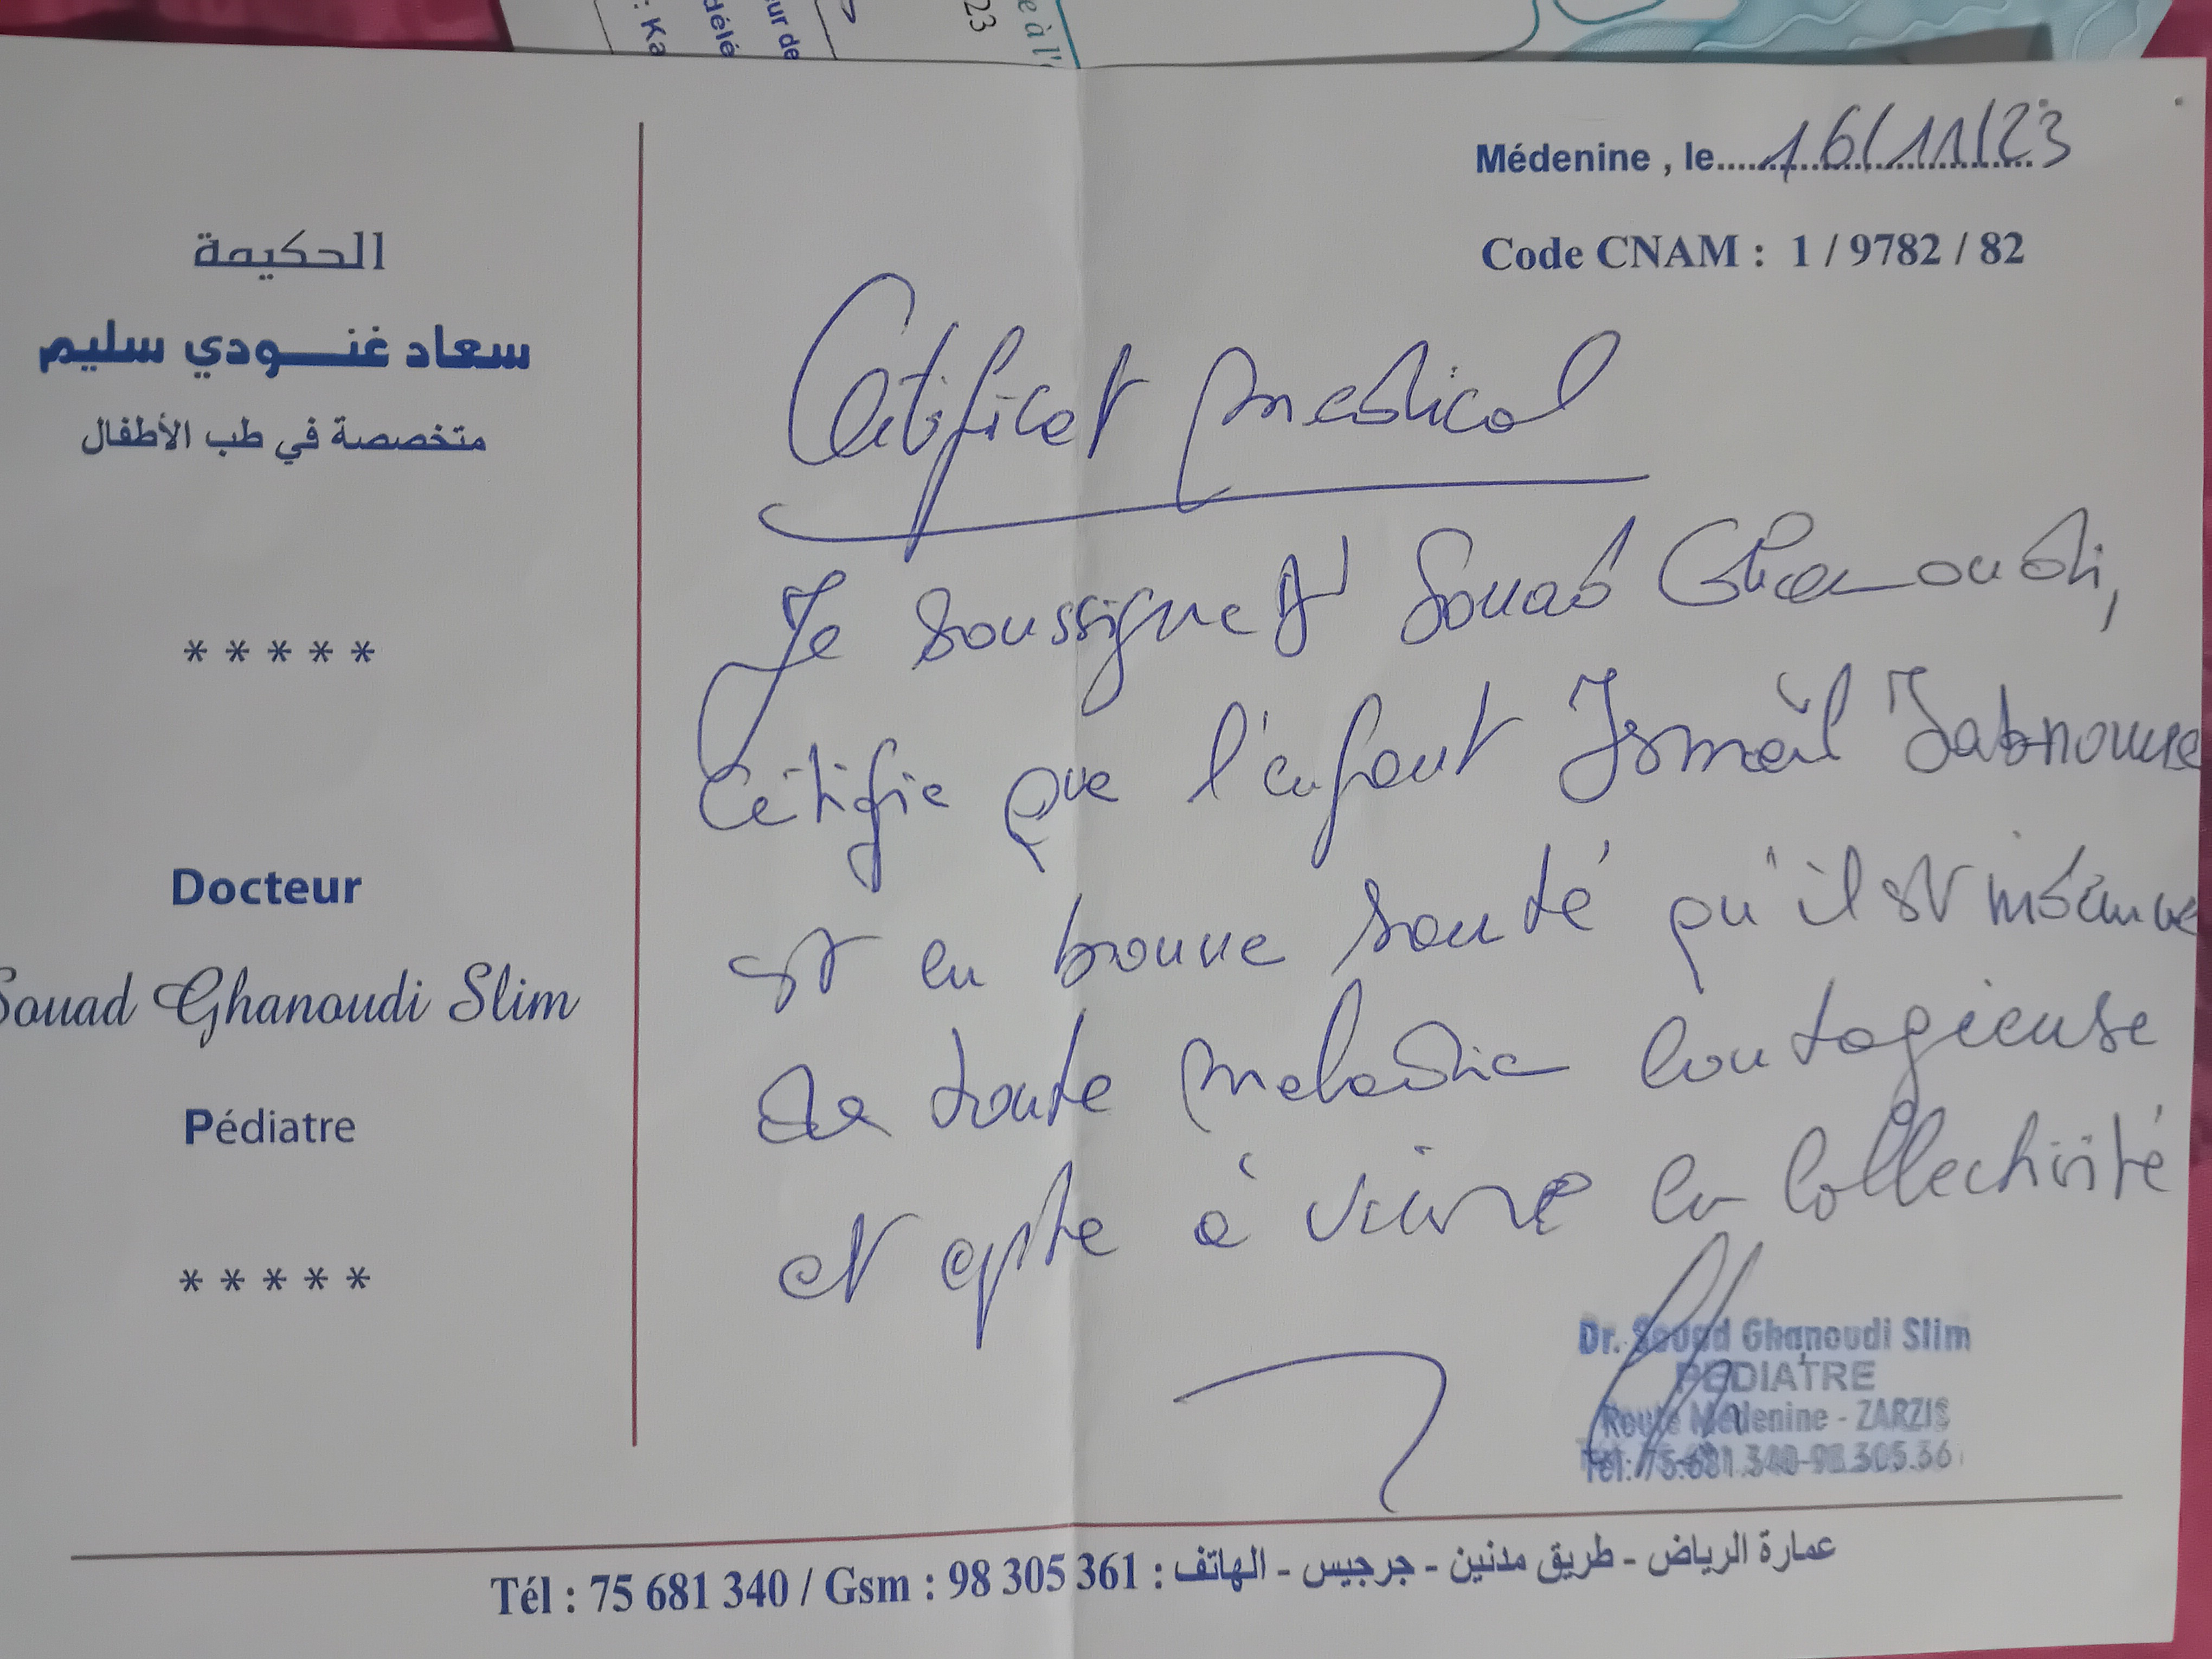 : Ka
délé
ur de
23
e à l'
Médenine , le 16/11/23
Code CNAM : 1 / 9782 / 82
الحكيمة
سعاد غنودي سليم
متخصصة في طب الأطفال
* * * * *
Docteur
Souad Ghanoudi Slim
Pédiatre
* * * * *
Certificat medical
Je soussigne Dr Souad Ghanoudi,
Certifie que l'enfant Ismaïl Jabnoune
est en bonne santé qu'il est indemne
de toute maladie contagieuse
et apte à vivre en collectivité
Dr. Souad Ghanoudi Slim
PEDIATRE
Route Médenine - ZARZIS
Tél: 75.681.340-98.305.361
عمارة الرياض - طريق مدنين - جرجيس - الهاتف : Tél : 75 681 340 / Gsm : 98 305 361